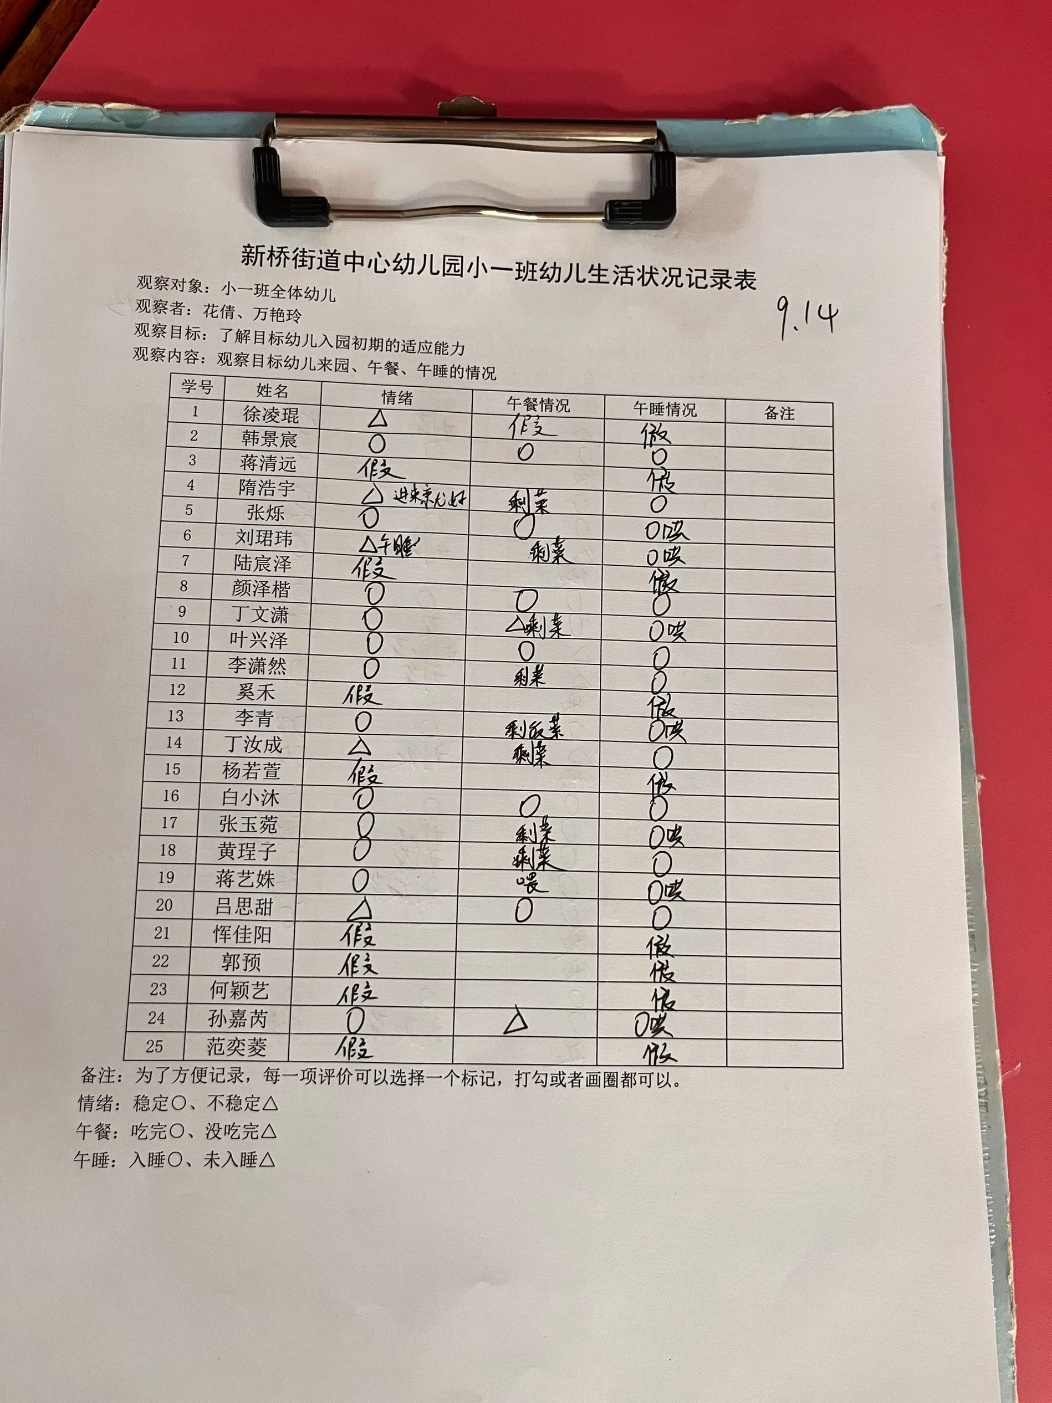 新桥街道中心幼儿园小一班幼儿生活状况记录表
9.14
观察对象：小一班全体幼儿
观察者：花倩、万艳玲
观察目标：了解目标幼儿入园初期的适应能力
观察内容：观察目标幼儿来园、午餐、午睡的情况
学号 姓名 情绪 午餐情况 午睡情况 备注
1 徐凌琨 △ 假 假
2 韩景宸 ○ ○ ○
3 蒋清远 假 假
4 隋浩宇 △ 剩菜 ○
5 张烁 ○ ○ ○哄
6 刘珺玮 △午睡 剩菜 ○哄
7 陆宸泽 假 假
8 颜泽楷 ○ ○ ○
9 丁文潇 ○ △剩菜 ○哄
10 叶兴泽 ○ ○ ○
11 李潇然 ○ 剩菜 ○
12 奚禾 假 假
13 李青 ○ 剩饭菜 ○哄
14 丁汝成 △ 剩菜 ○
15 杨若萱 假 假
16 白小沐 ○ ○ ○
17 张玉菀 ○ 剩菜 ○哄
18 黄珵子 ○ 剩菜 ○
19 蒋艺姝 ○ 喂 ○哄
20 吕思甜 △ ○ ○
21 恽佳阳 假 假
22 郭预 假 假
23 何颖艺 假 假
24 孙嘉芮 ○ △ ○哄
25 范奕菱 假 假
备注：为了方便记录，每一项评价可以选择一个标记，打勾或者画圈都可以。
情绪：稳定○、不稳定△
午餐：吃完○、没吃完△
午睡：入睡○、未入睡△